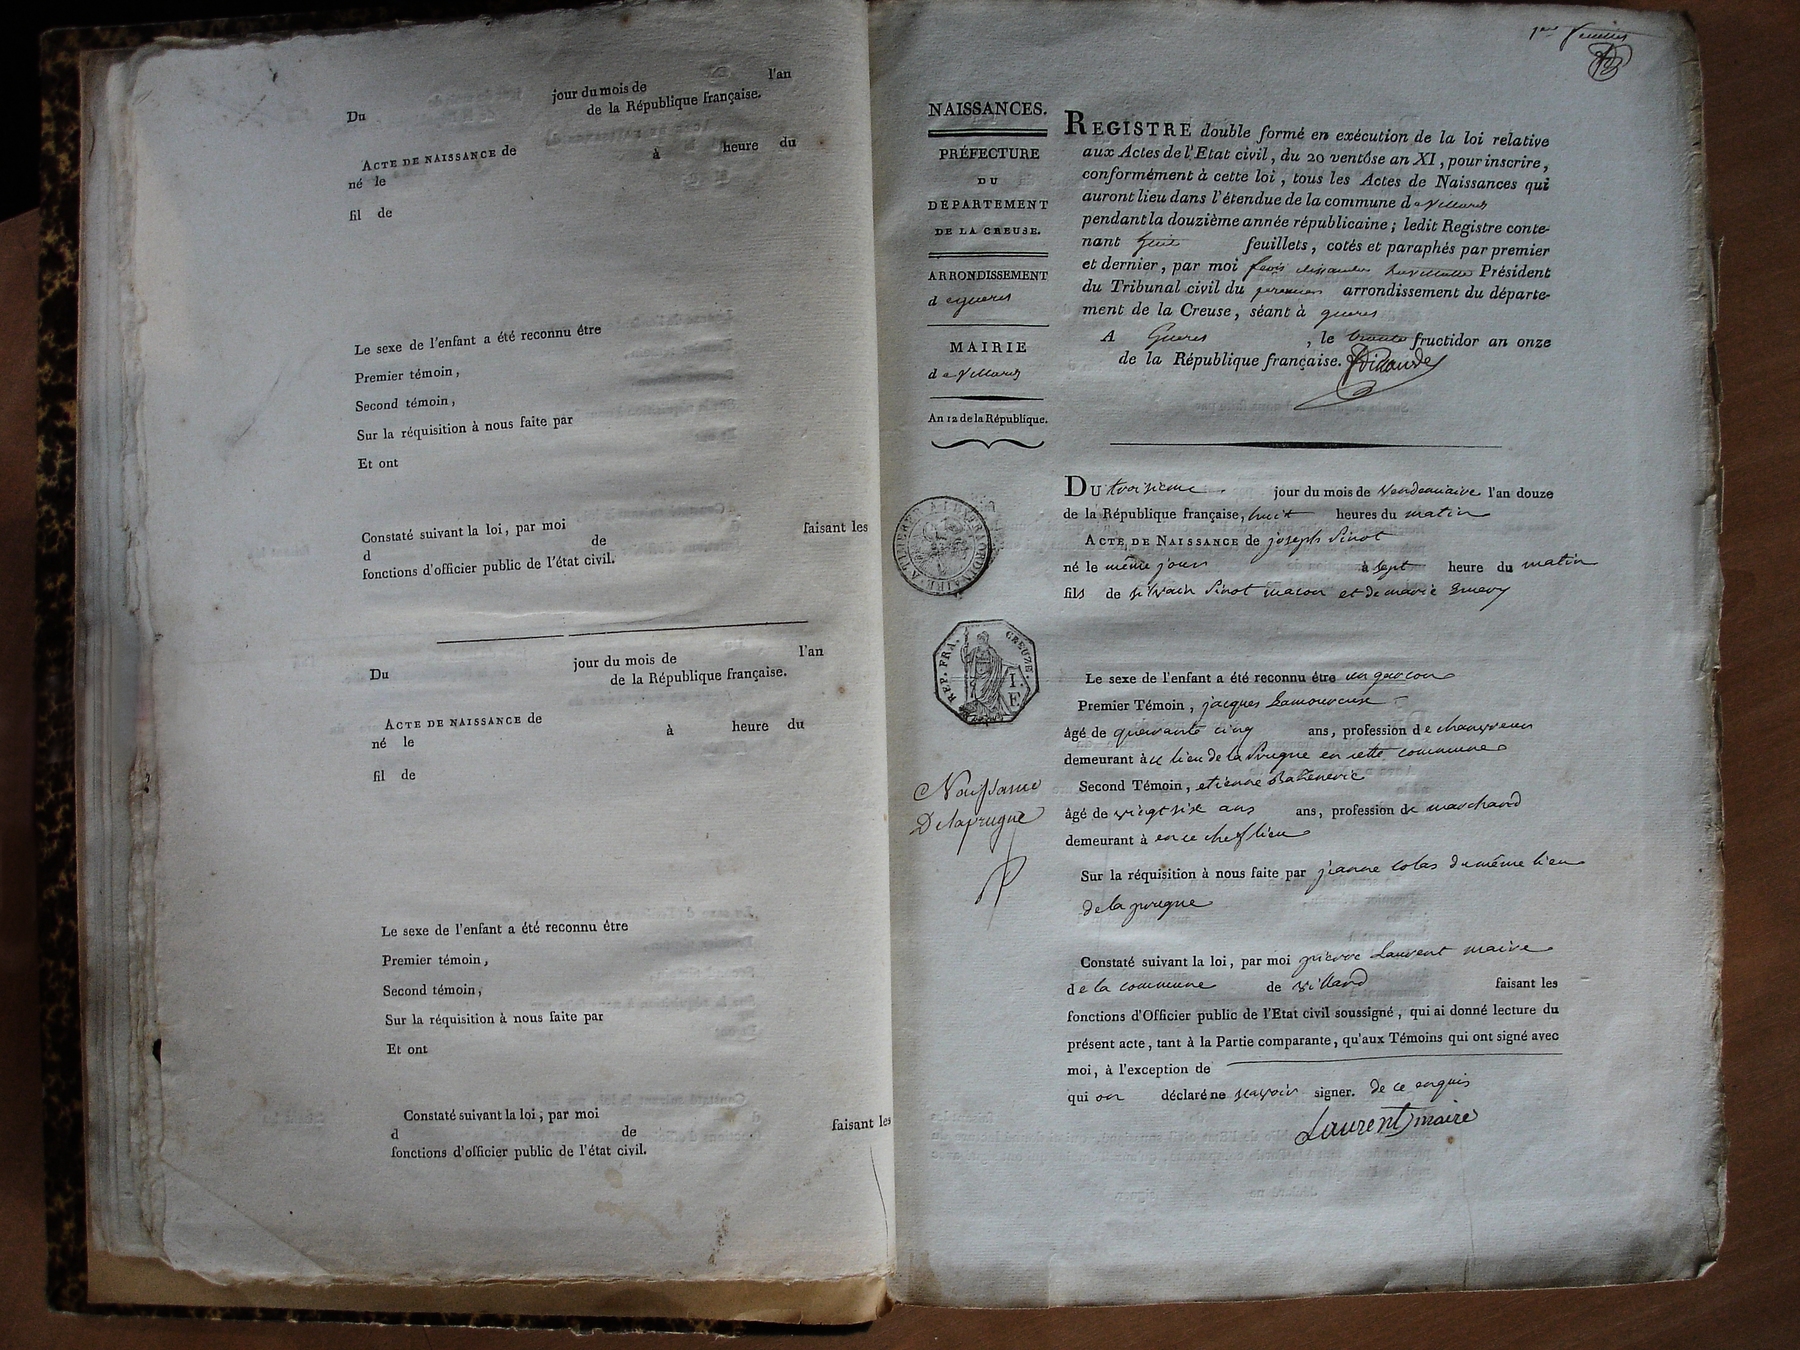 Du jour du mois de l'an
de la République française.
ACTE DE NAISSANCE de
né le à heure du
fil de
Le sexe de l'enfant a été reconnu être
Premier témoin,
Second témoin,
Sur la réquisition à nous faite par
Et ont
Constaté suivant la loi, par moi
d de faisant les
fonctions d'officier public de l'état civil.
Du jour du mois de l'an
de la République française.
ACTE DE NAISSANCE de
né le à heure du
fil de
Le sexe de l'enfant a été reconnu être
Premier témoin,
Second témoin,
Sur la réquisition à nous faite par
Et ont
Constaté suivant la loi, par moi
d de faisant les
fonctions d'officier public de l'état civil.
NAISSANCES.
PRÉFECTURE
DU
DÉPARTEMENT
DE LA CREUSE.
ARRONDISSEMENT
d
MAIRIE
de Villard
An 12 de la République.
REGISTRE double formé en exécution de la loi relative
aux Actes de l'Etat civil, du 20 ventôse an XI, pour inscrire,
conformément à cette loi, tous les Actes de Naissances qui
auront lieu dans l'étendue de la commune de Villard
pendant la douzième année républicaine; ledit Registre conte-
nant feuillets, cotés et paraphés par premier
et dernier, par moi Président
du Tribunal civil du premier arrondissement du départe-
ment de la Creuse, séant à gueret
A Gueret, le trente fructidor an onze
de la République française.
A TIMBRER A L'EXTRAORDINAIRE
REP. FRA. CREUZE.
Naissance
Delaprugne
DU troisieme jour du mois de Vendemiaire l'an douze
de la République française, huit heures du matin
ACTE DE NAISSANCE de joseph Pinot
né le même jour à sept heure du matin
fils de silvain Pinot macon et de marie
Le sexe de l'enfant a été reconnu être un garcon
Premier Témoin, jacques Lamoureuse
âgé de quarante cinq ans, profession de
demeurant au lieu de la Prugne en cette commune
Second Témoin, etienne
âgé de vingt six ans ans, profession de marchand
demeurant à en ce chef lieu
Sur la réquisition à nous faite par jeanne colas du même lieu
de la prugne
Constaté suivant la loi, par moi pierre Laurent maire
de la commune de villard faisant les
fonctions d'Officier public de l'Etat civil soussigné, qui ai donné lecture du
présent acte, tant à la Partie comparante, qu'aux Témoins qui ont signé avec
moi, à l'exception de
qui on déclaré ne scavoir signer. de ce enquis
Laurent maire